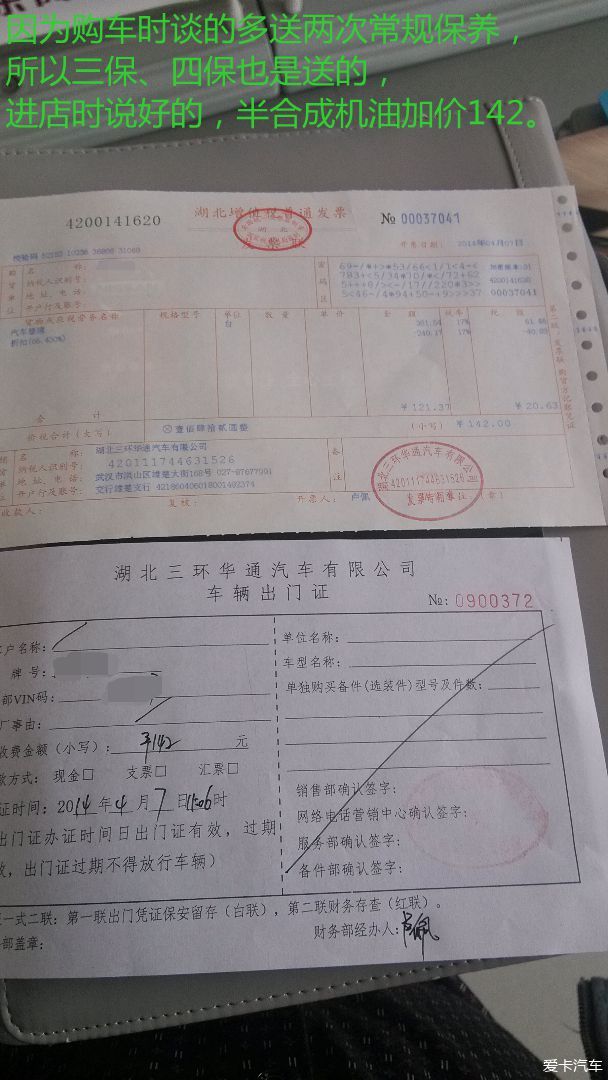 因为购车时谈的多送两次常规保养，
所以三保、四保也是送的，
进店时说好的，半合成机油加价142。
4200141620
湖北增值税普通发票
№ 00037041
湖北
开票日期： 2014年04月07日
名 称：
纳税人识别号：
地 址、电 话：
开户行及账号：
密码区
4200141620
00037041
货物或应税劳务名称
规格型号
单位
数 量
单 价
金 额
税率
税 额
汽车整理
台
361.54
17%
61.46
-240.17
17%
-40.83
合 计
￥121.37
￥20.63
价税合计（大写）
ⓧ壹佰肆拾贰圆整
（小写）
￥142.00
名 称：
湖北三环华通汽车有限公司
纳税人识别号：
420111744631526
地 址、电 话：
武汉市洪山区雄楚大街168号 027-87677901
开户行及账号：
交行雄楚支行
备注
收款人：
复核：
开票人：
卢佩
湖北三环华通汽车有限公司
420111744631526
发票专用章
第二联：发票联 购货方记账凭证
湖北三环华通汽车有限公司
车辆出门证
№: 0900372
户名称：
牌号：
部VIN码：
厂事由：
收费金额（小写）：
￥142
元
款方式： 现金□ 支票□ 汇票□
证时间：2014年4月7日
时
出门证办证时间日出门证有效，过期
效，出门证过期不得放行车辆）
单位名称：
车型名称：
单独购买备件(选装件)型号及件数：
销售部确认签字：
网络电话营销中心确认签字：
服务部确认签字：
备件部确认签字：
一式二联：第一联出门凭证保安留存（白联），第二联财务存查（红联）。
部盖章：
财务部经办人：
卢佩
爱卡汽车